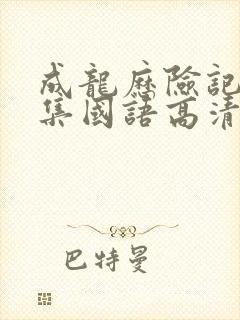 成龍歷險記
集國語高清
巴特曼